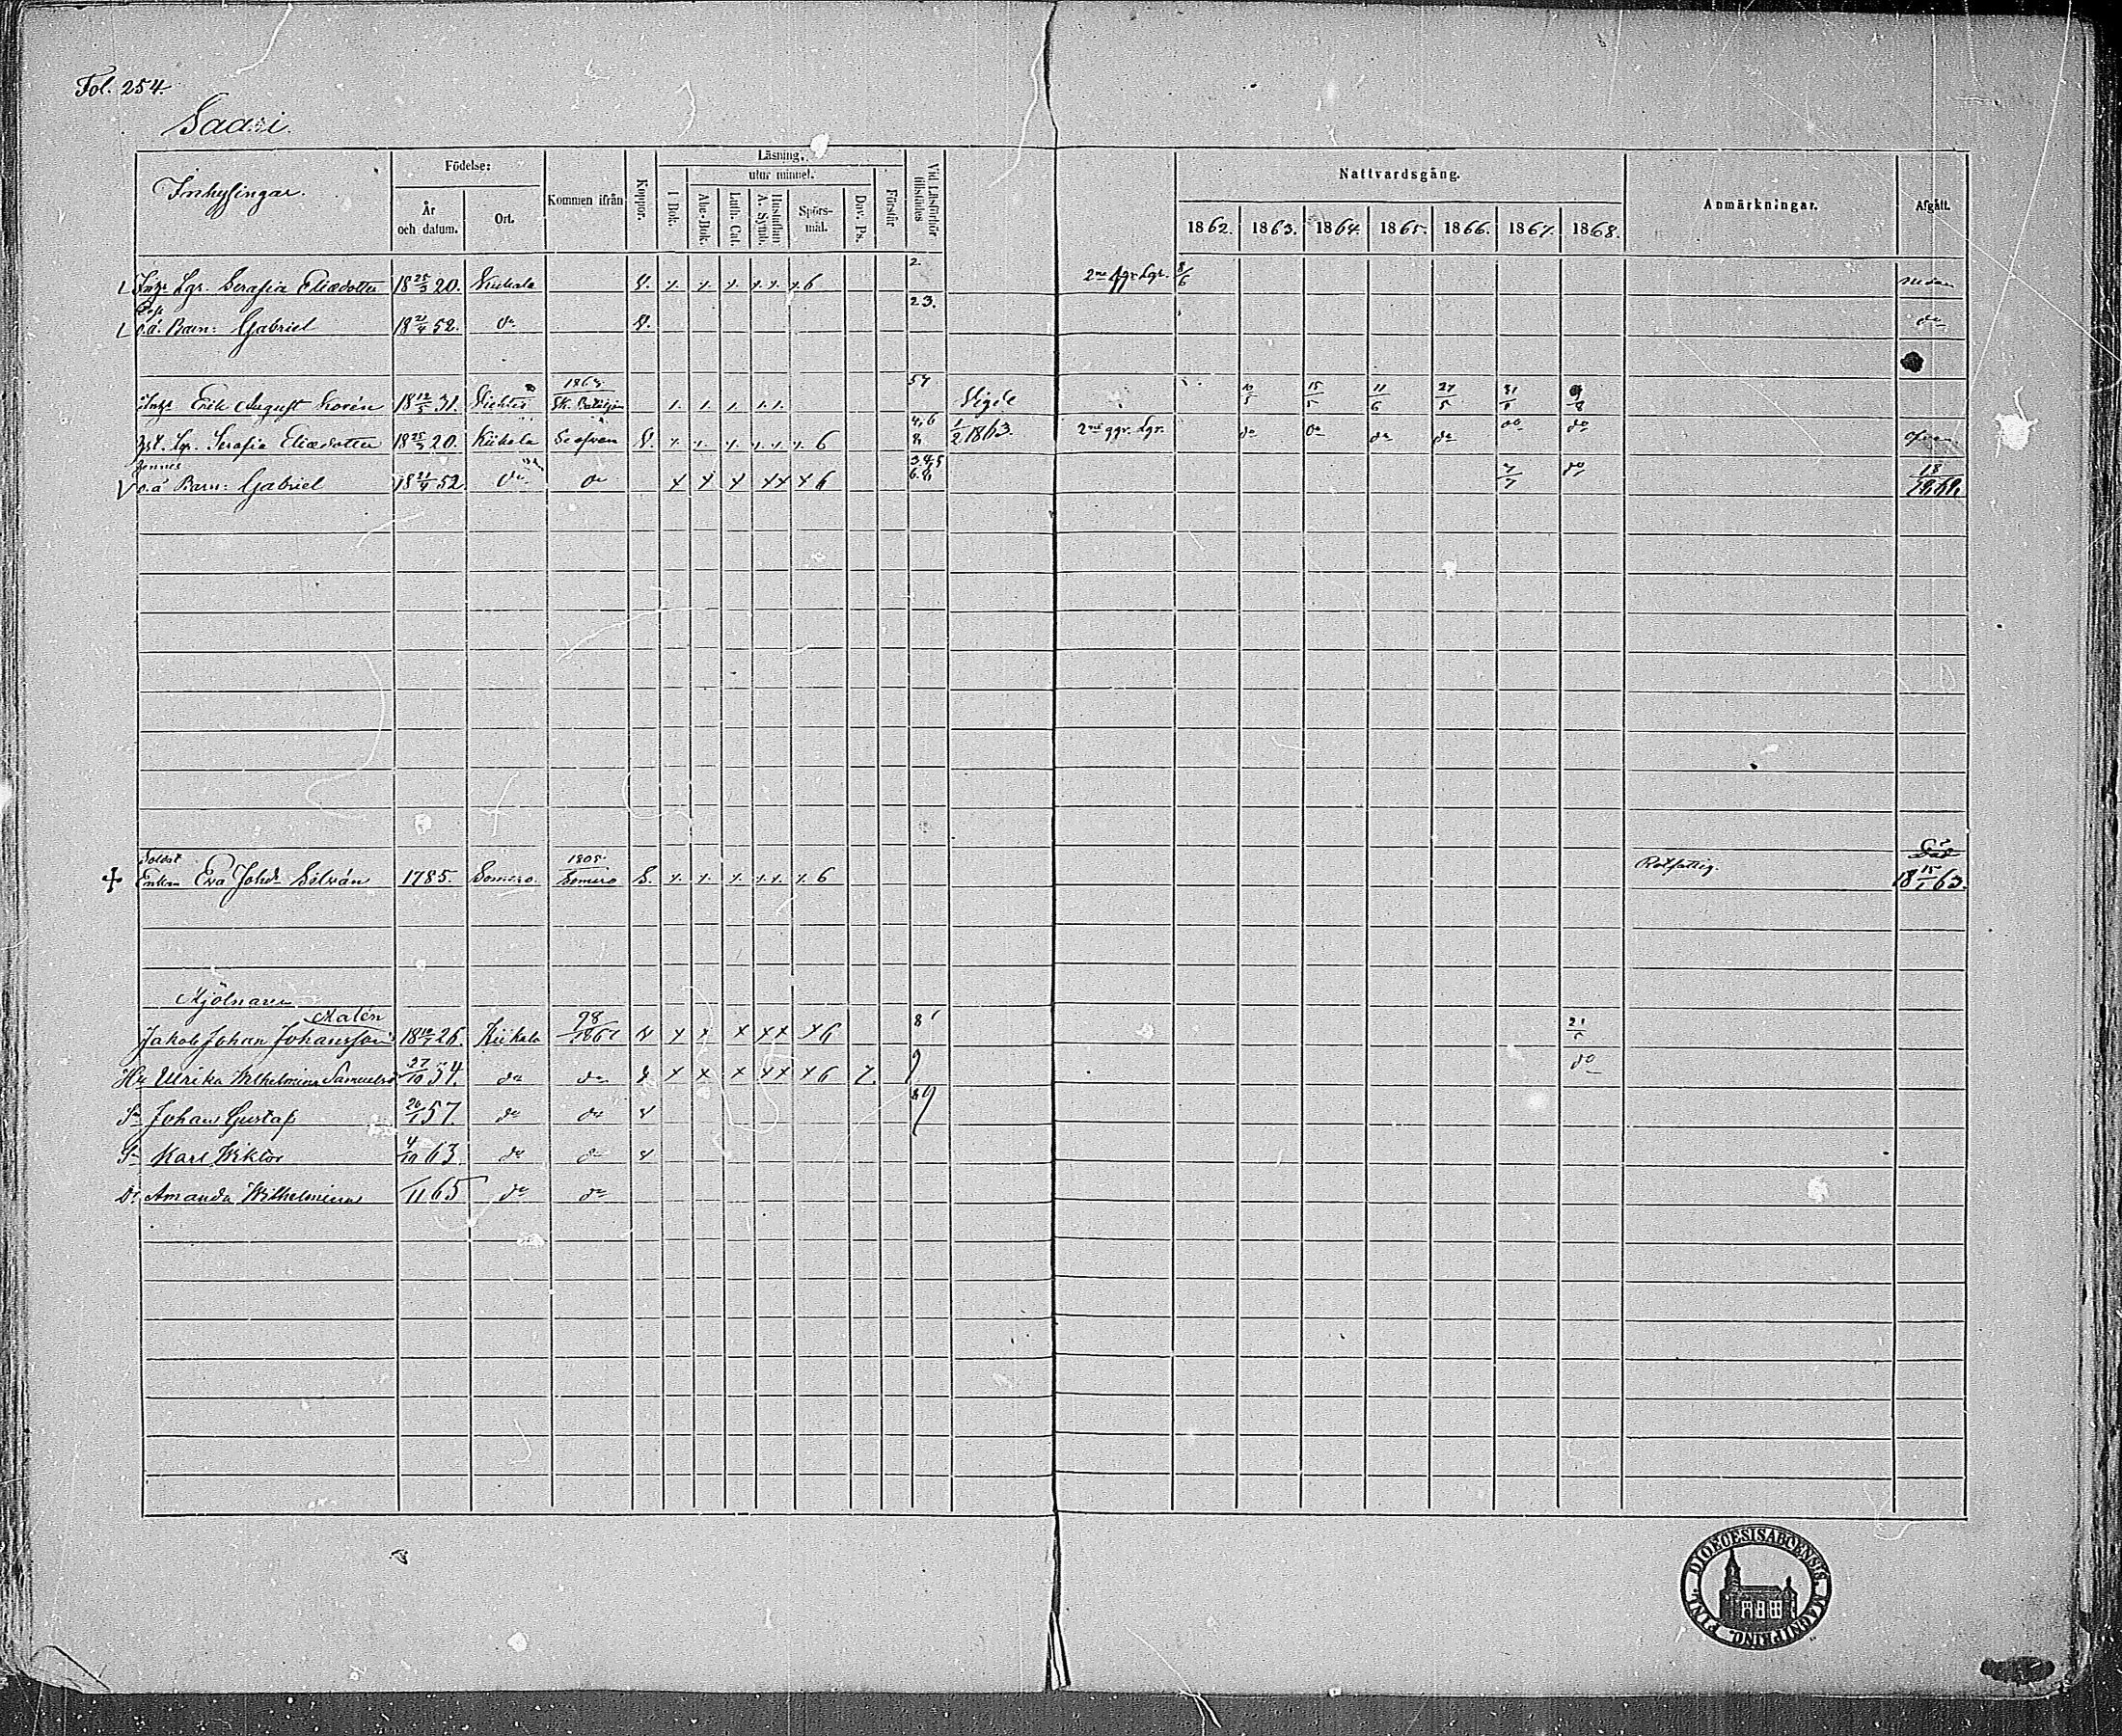 Fol. 254.
Saari.
Inhysingar.
Födelse:
År och datum.
Ort.
Kommen ifrån
Koppor.
Läsning.
utur minnet.
I Bok.
Abc-Bok.
Luth. Cat.
Hustaflan A. Symb.
Spörs-mål.
Dav. Ps.
Förstår
Vid Läsförhör tillstädes
Nattvardsgång.
1862. 1863. 1864 1865. 1866. 1867. 1868.
Anmärkningar.
Afgått.
Lgr. Serafia Eliædotter 18 25/3 20. Kiikala x. x. x. x. x. x 6 2. 2ne ggr Lgr. 8/6 nedan
o.ä. Barn: Gabriel 18 21/4 52. do 23. do
Erik August Norén 18 12/5 31. 1863. 57 Vigde 10/5 15/5 11/6 27/5
Lgr. Serafia Eliædotter 18 25/3 20. Kiikala x. x. x. x. x. x. 6 4,6 8, 1/2 1863. 2ne ggr. Lgr. do do do do do do ofvan
o.ä Barn: Gabriel 18 21/4 52 do do x x x x x x 6 3.4,5 6.8, 7/7 do
Soldat
Enkan Eva Johdr Silván 1785. Somero. 1805. Somero x. x. x. x. x. x. 6 Rotfattig. Död 18 15/1 63.
Mjölnaren
Malén
Jakob Johan Johansson 18 10/7 26. Kiikala x x x x x x 6 8 21/5
Hu Ulrika Wilhelmina Samuelsdr 27/10 34. do do x x x x x x 6 7. 9 do
Sn Johan Gustaf 20/1 57. do do 89
Sn Karl Wiktor 4/10 63 do do
Dr. Amanda Wilhelmina /11 65 do do
DIOECESIS ABOENSIS. MAGNI PRINC. FINL.